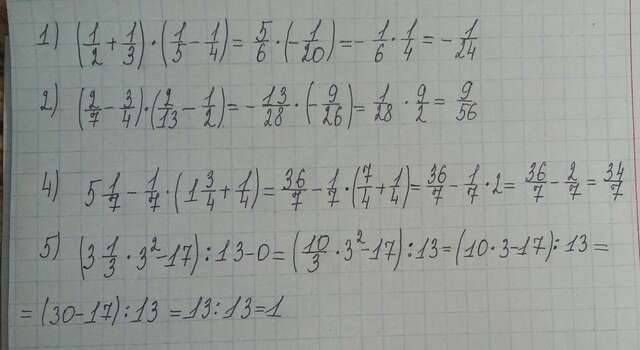 1) (1/2 + 1/3) · (1/5 - 1/4) = 5/6 · (-1/20) = -1/6 · 1/4 = -1/24
2) (2/7 - 3/4) · (2/13 - 1/2) = -13/28 · (-9/26) = 1/28 · 9/2 = 9/56
4) 5 1/7 - 1/7 · (1 3/4 + 1/4) = 36/7 - 1/7 · (7/4 + 1/4) = 36/7 - 1/7 · 2 = 36/7 - 2/7 = 34/7
5) (3 1/3 · 3² - 17) : 13 - 0 = (10/3 · 3² - 17) : 13 = (10 · 3 - 17) : 13 =
= (30 - 17) : 13 = 13 : 13 = 1